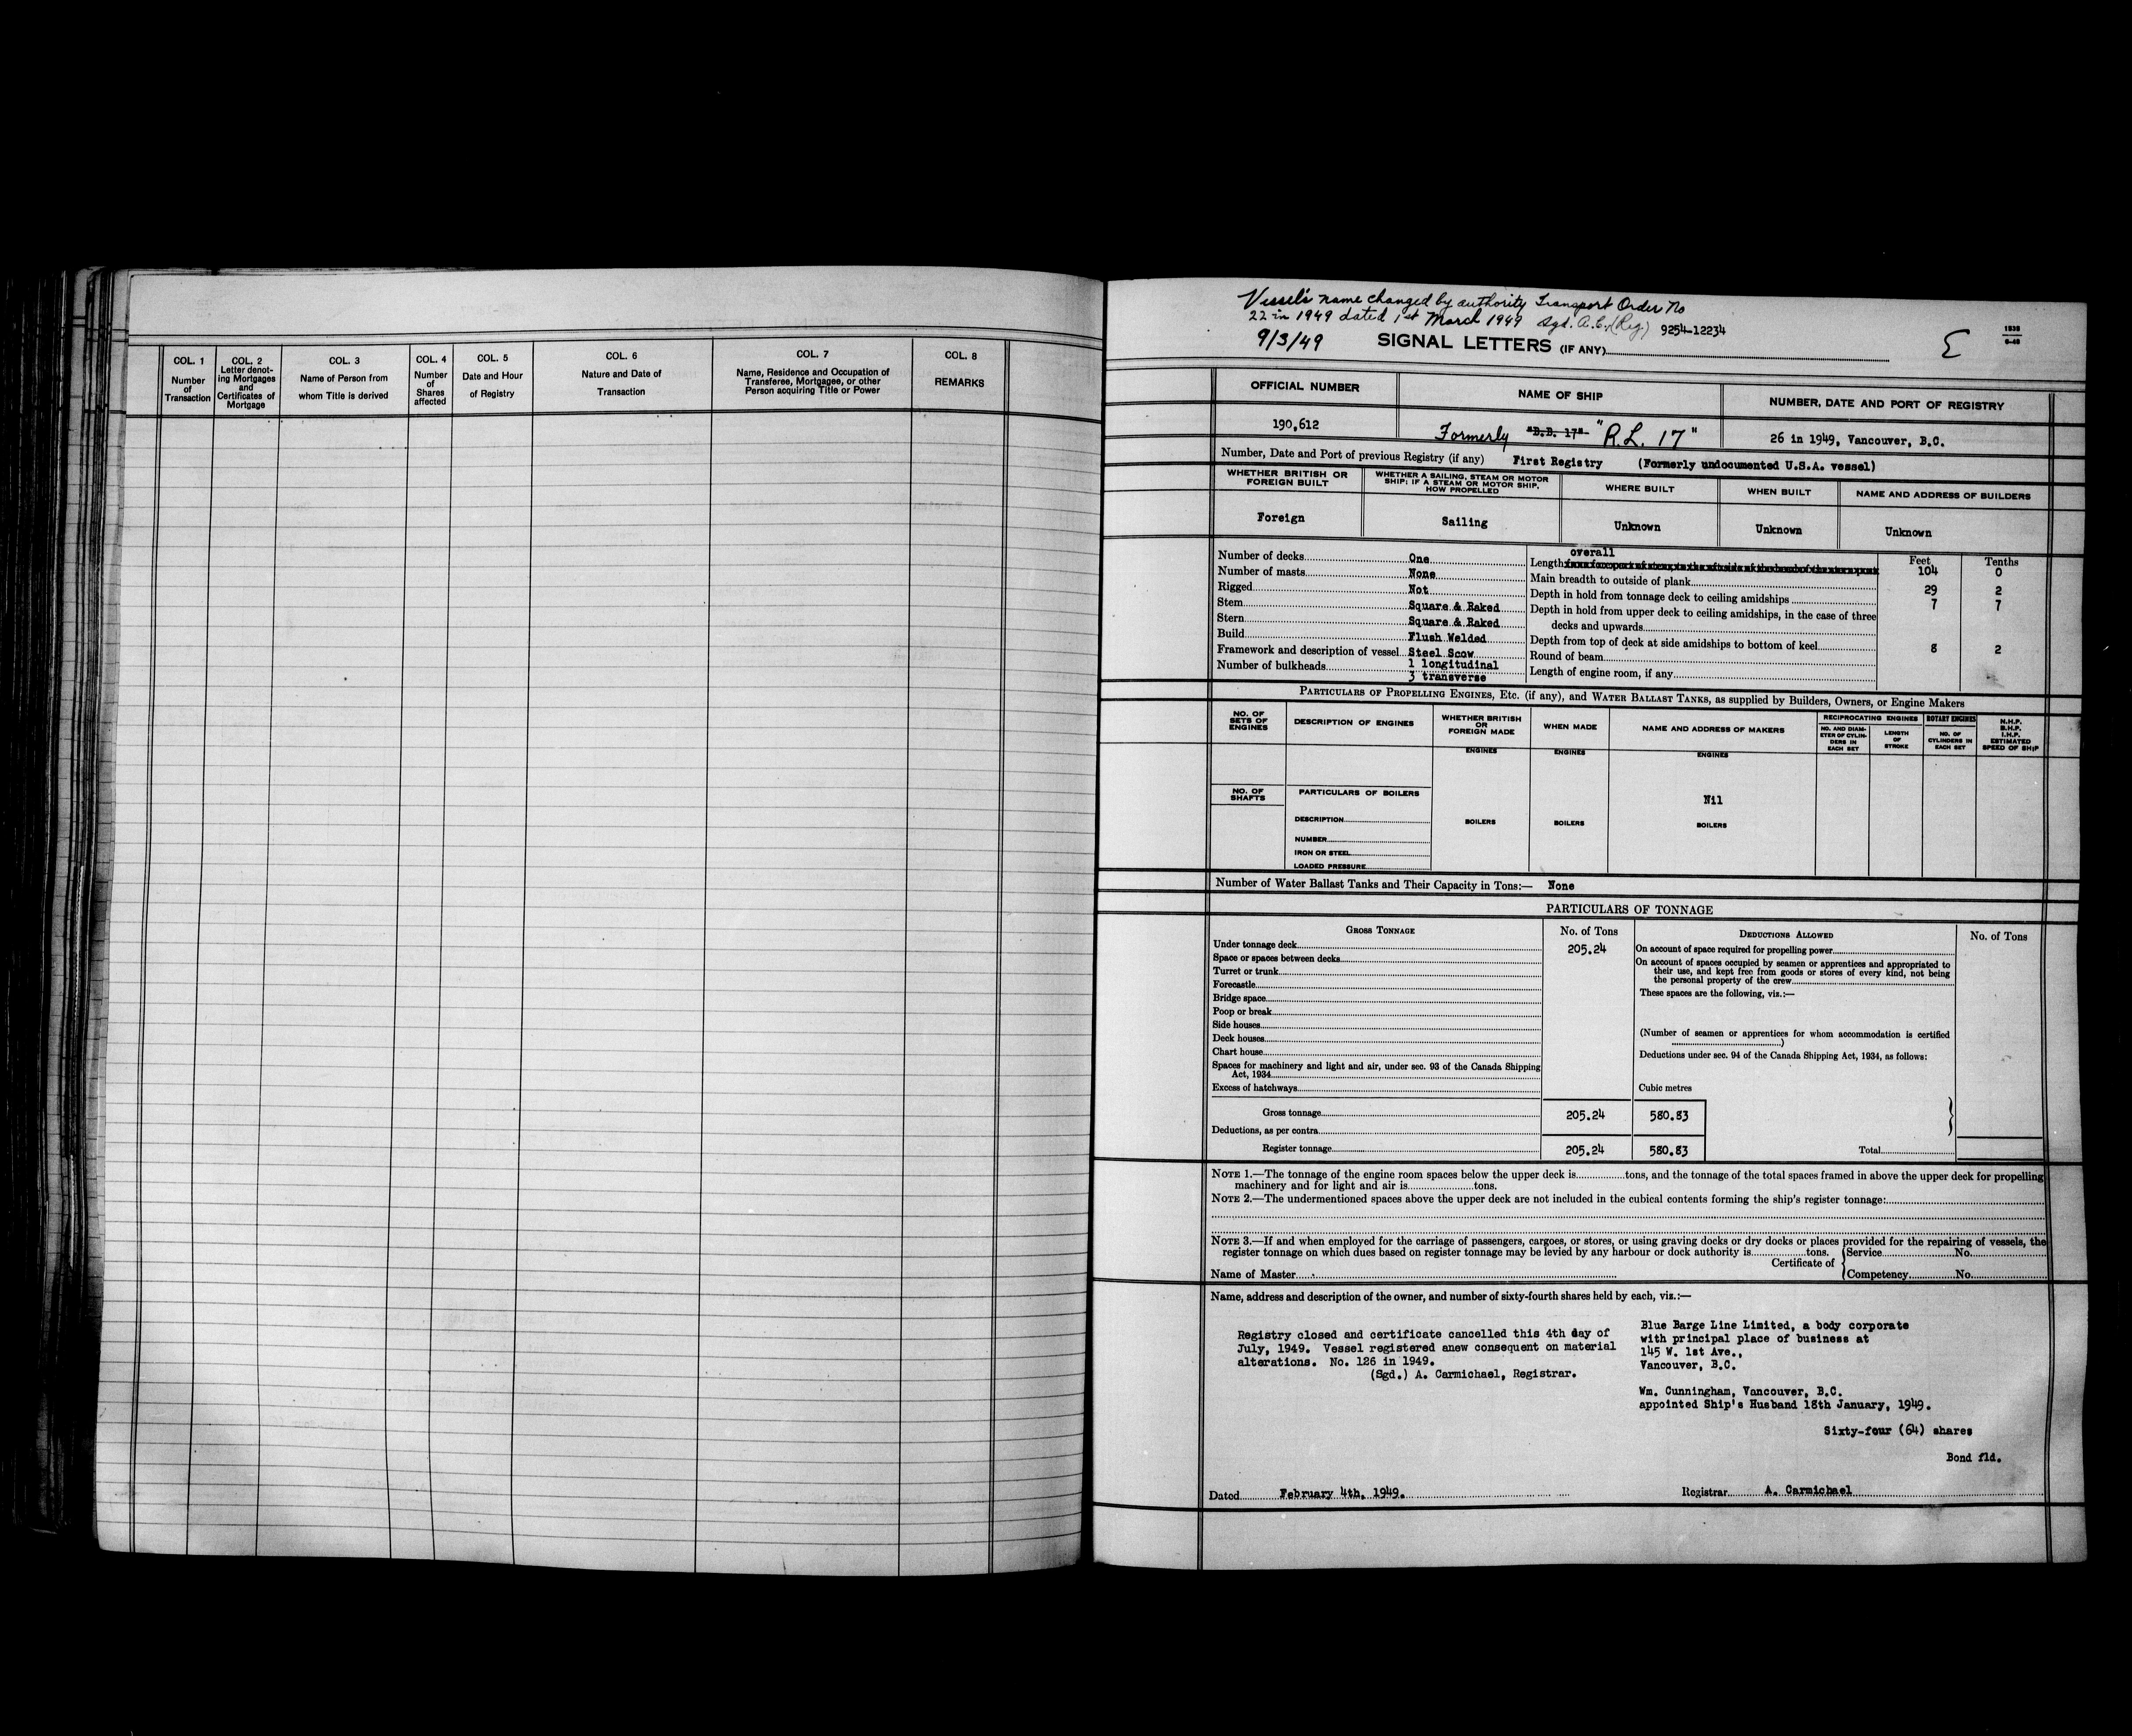 COL. 1
Number
of
Transaction
COL. 2
Letter denot-
ing Mortgages
and
Certificates of
Mortgage
COL. 3
Name of Person from
whom Title is derived
COL. 4
Number
of
Shares
affected
COL. 5
Date and Hour
of Registry
COL. 6
Nature and Date of
Transaction
COL. 7
Name, Residence and Occupation of
Transferee, Mortgagee, or other
Person acquiring Title or Power
COL. 8
REMARKS
Vessel's name changed by authority Transport Order No
22 in 1949 dated 1st March 1949 Sgd. A.C. (Reg.) 9254-12234
9/3/49 SIGNAL LETTERS (IF ANY)
OFFICIAL NUMBER
NAME OF SHIP
NUMBER, DATE AND PORT OF REGISTRY
190,612
Formerly "B.B. 17" "R.L. 17"
26 in 1949, Vancouver, B.C.
Number, Date and Port of previous Registry (if any) First Registry (Formerly undocumented U.S.A. vessel)
WHETHER BRITISH OR
FOREIGN BUILT
WHETHER A SAILING, STEAM OR MOTOR
SHIP; IF A STEAM OR MOTOR SHIP,
HOW PROPELLED
WHERE BUILT
WHEN BUILT
NAME AND ADDRESS OF BUILDERS
Foreign
Sailing
Unknown
Unknown
Unknown
Number of decks One
Number of masts None
Rigged Not
Stem Square & Raked
Stern Square & Raked
Build Flush Welded
Framework and description of vessel Steel Scow
Number of bulkheads 1 longitudinal
3 transverse
Feet Tenths
overall
Length 104 0
Main breadth to outside of plank 29 2
Depth in hold from tonnage deck to ceiling amidships 7 7
Depth in hold from upper deck to ceiling amidships, in the case of three
decks and upwards
Depth from top of deck at side amidships to bottom of keel 8 2
Round of beam
Length of engine room, if any
PARTICULARS OF PROPELLING ENGINES, ETC. (if any), and WATER BALLAST TANKS, as supplied by Builders, Owners, or Engine Makers
NO. OF
SETS OF
ENGINES
DESCRIPTION OF ENGINES
WHETHER BRITISH
OR
FOREIGN MADE
WHEN MADE
NAME AND ADDRESS OF MAKERS
RECIPROCATING ENGINES
NO. AND DIAM-
ETER OF CYLIN-
DERS IN
EACH SET
LENGTH
OF
STROKE
ROTARY ENGINES
NO. OF
CYLINDERS IN
EACH SET
N.H.P.
B.H.P.
I.H.P.
ESTIMATED
SPEED OF SHIP
ENGINES
ENGINES
ENGINES
NO. OF
SHAFTS
PARTICULARS OF BOILERS
Nil
DESCRIPTION
BOILERS
BOILERS
BOILERS
NUMBER
IRON OR STEEL
LOADED PRESSURE
Number of Water Ballast Tanks and Their Capacity in Tons:— None
PARTICULARS OF TONNAGE
GROSS TONNAGE
No. of Tons
Under tonnage deck 205.24
Space or spaces between decks
Turret or trunk
Forecastle
Bridge space
Poop or break
Side houses
Deck houses
Chart house
Spaces for machinery and light and air, under sec. 93 of the Canada Shipping
Act, 1934
Excess of hatchways
Gross tonnage 205.24 580.83
Deductions, as per contra
Register tonnage 205.24 580.83
DEDUCTIONS ALLOWED
No. of Tons
On account of space required for propelling power
On account of spaces occupied by seamen or apprentices and appropriated to
their use, and kept free from goods or stores of every kind, not being
the personal property of the crew
These spaces are the following, viz.:—
(Number of seamen or apprentices for whom accommodation is certified
)
Deductions under sec. 94 of the Canada Shipping Act, 1934, as follows:
Cubic metres
Total
NOTE 1.—The tonnage of the engine room spaces below the upper deck is tons, and the tonnage of the total spaces framed in above the upper deck for propelling
machinery and for light and air is tons.
NOTE 2.—The undermentioned spaces above the upper deck are not included in the cubical contents forming the ship's register tonnage:
NOTE 3.—If and when employed for the carriage of passengers, cargoes, or stores, or using graving docks or dry docks or places provided for the repairing of vessels, the
register tonnage on which dues based on register tonnage may be levied by any harbour or dock authority is tons.
Name of Master
Certificate of
Service No.
Competency No.
Name, address and description of the owner, and number of sixty-fourth shares held by each, viz.:—
Registry closed and certificate cancelled this 4th day of
July, 1949. Vessel registered anew consequent on material
alterations. No. 126 in 1949.
(Sgd.) A. Carmichael, Registrar.
Blue Barge Line Limited, a body corporate
with principal place of business at
145 W. 1st Ave.,
Vancouver, B.C.
Wm. Cunningham, Vancouver, B.C.
appointed Ship's Husband 18th January, 1949.
Sixty-four (64) shares
Bond fld.
Dated February 4th, 1949.
Registrar A. Carmichael